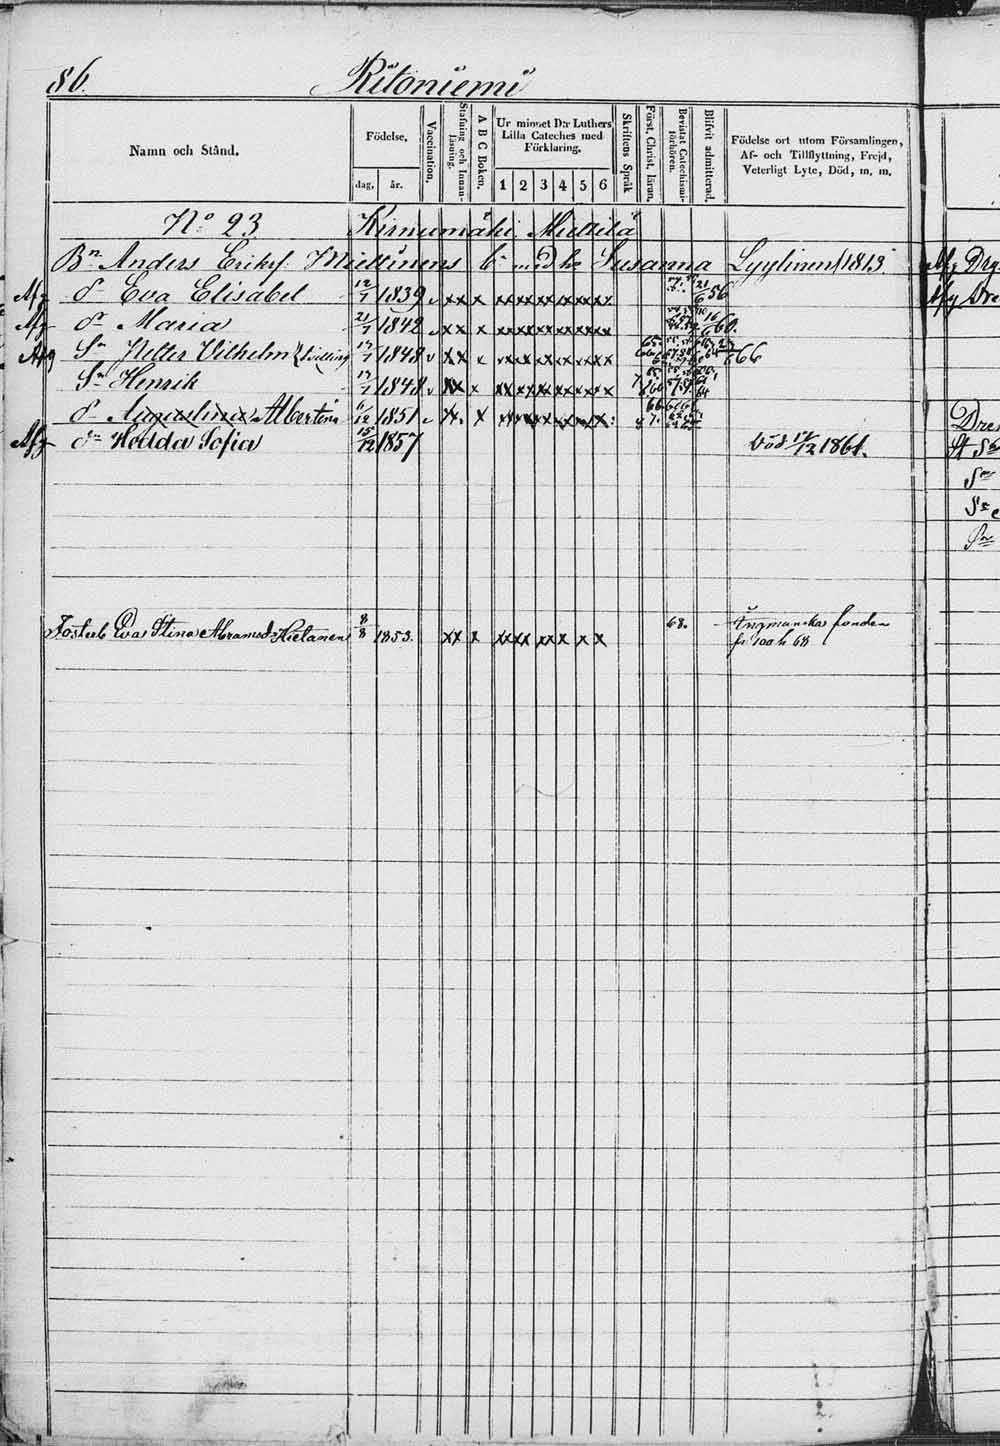 86. Ritoniemi
Namn och Stånd. Födelse. dag. år. Vaccination. Stafning och Innanläsning. A B C Boken. Ur minnet D:r Luthers Lilla Cateches med Förklaring. 1 2 3 4 5 6 Skriftens Språk Först. Christ. läran. Bevistat Catechismi-förhören. Blifvit admitterad. Födelse ort utom Församlingen, Af- och Tillflyttning, Frejd, Veterligt Lyte, Död, m. m.
No 23 Kirnumäki Miettilä
Bn Anders Eriks. Miettinens b. med h. Susanna Lyytinen 1813.
Afg dr Eva Elisabet 12/7 1839 v xx x xx xx xx xx xx xx 21/6 56
Afg dr Maria 21/7 1842 v x x x xx xx xx xx xx xx 16/6 60.
Afg Sn Petter Vilhelm } tvilling 17/7 1848 v xx x xx xx xx xx xx xx 66
Sn Henrik 17/7 1848 v xx x xx xx xx xx x x
dr Augustina Albertina 6/12 1851 v x x. x xx xx xx xx xx x:
Afg dr Hedda Sofia 15/12 1857 Död 17/12 1861.
Fosterb Eva Stina Abramsdr Hietanen 8/8 1853. xx x xx xx xx x x x 68. Ingmanska fonden
fr 100 h 68
Afg
Afg